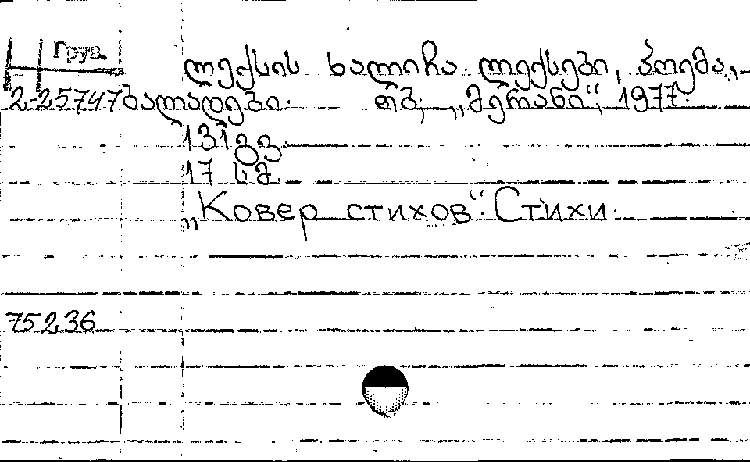 Груз.
ლექსის ხალიჩა. ლექსები, პოემა,
2-25747 ბალადები. თბ., „მერანი“, 1977.
131 გვ.
17 სმ.
„Ковер стихов“. Стихи.
75236